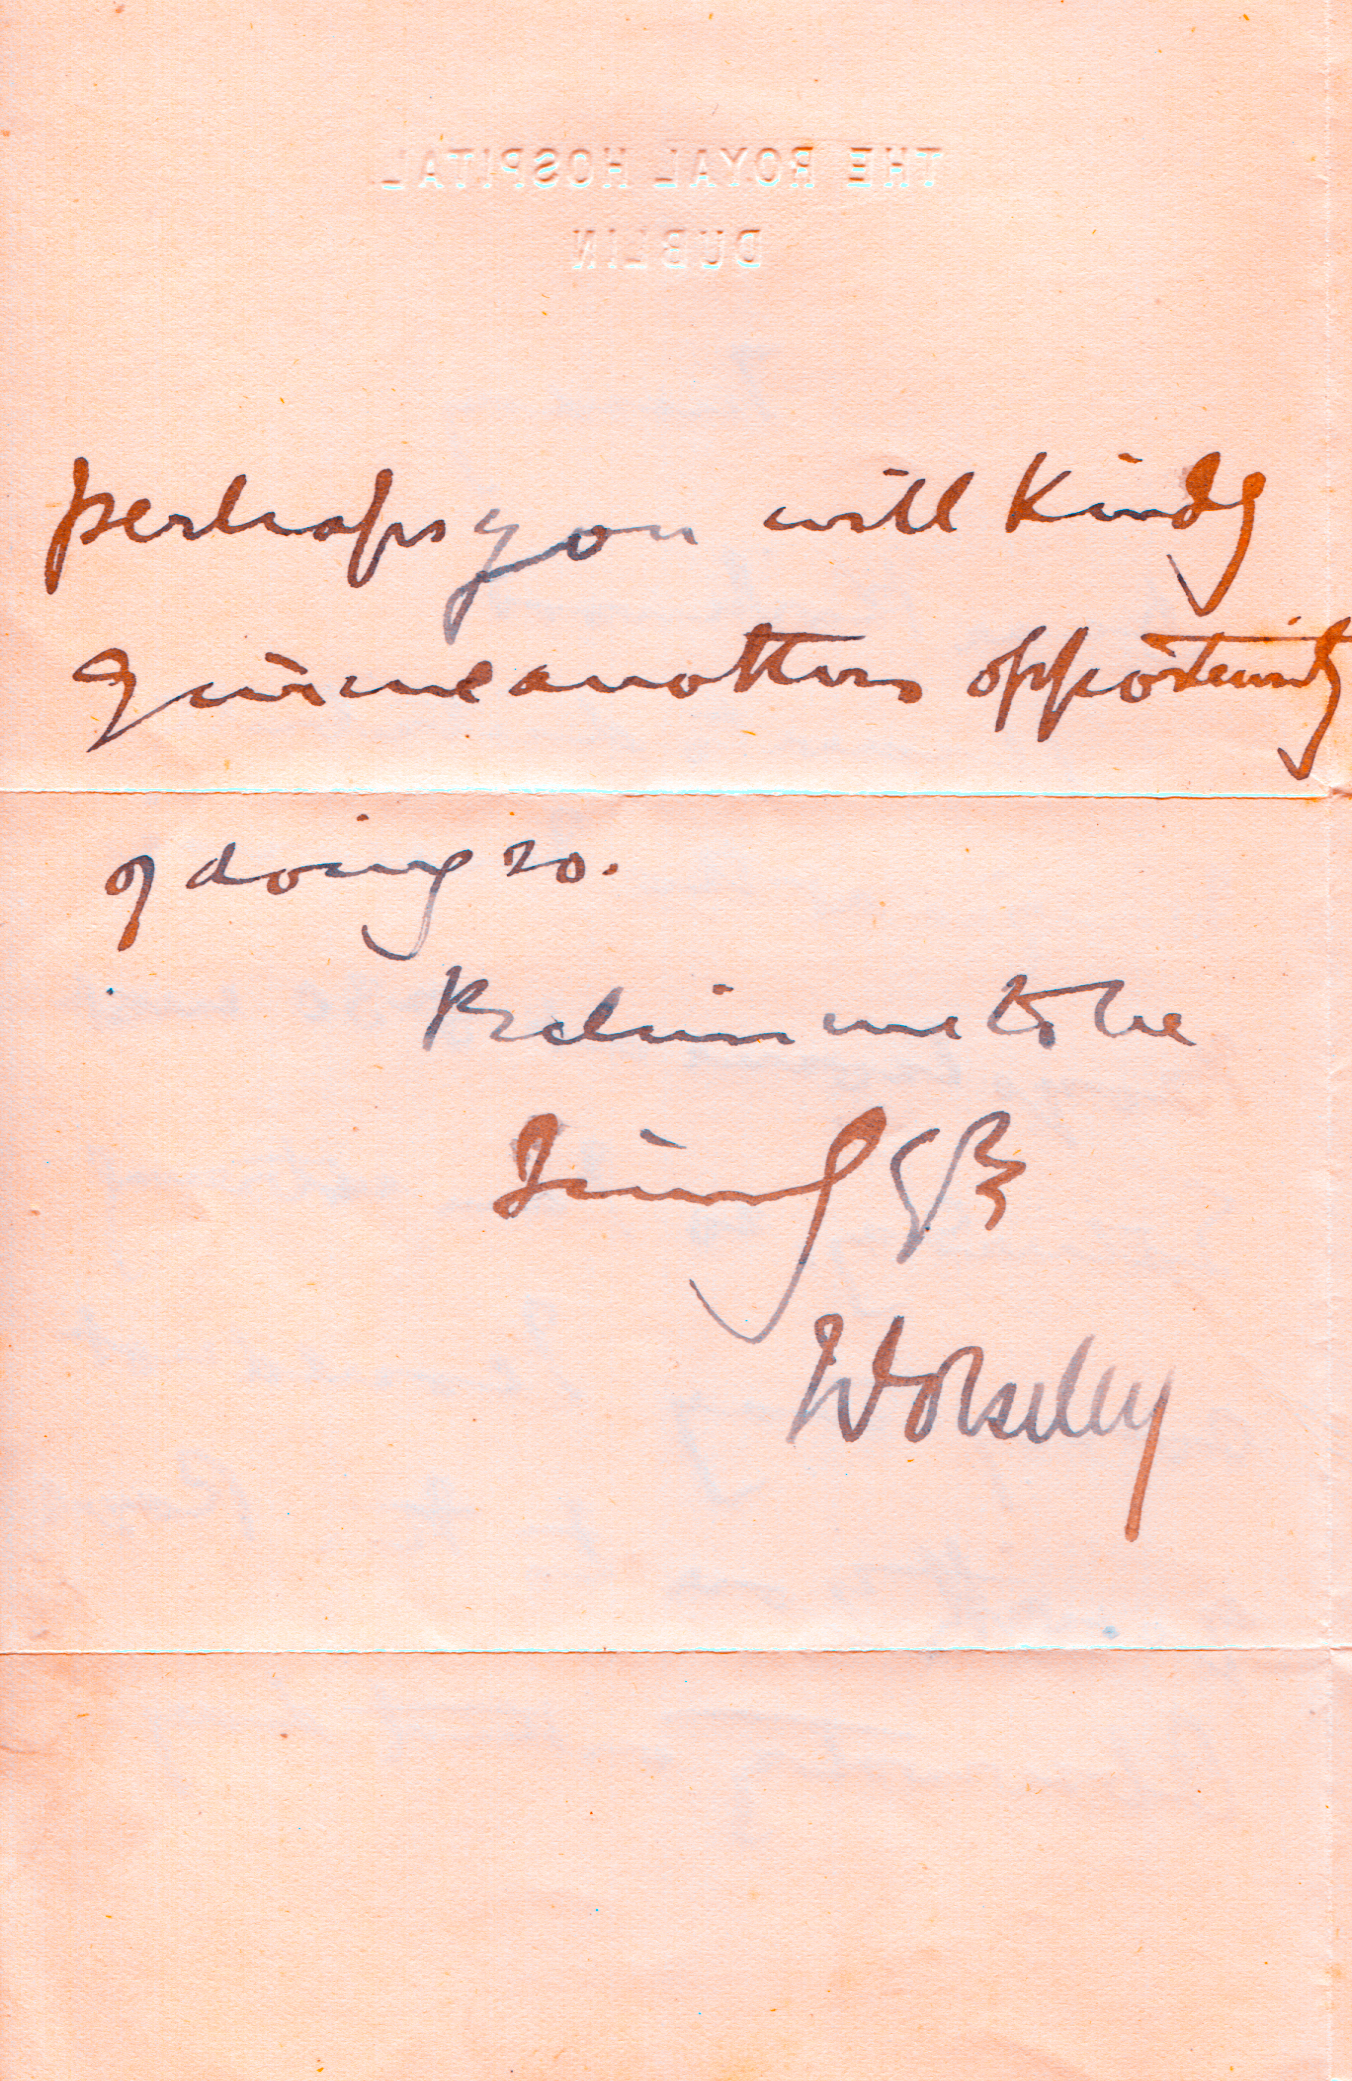 THE ROYAL HOSPITAL
DUBLIN
perhaps you will kindly
give me another opportunity
of doing so.
Believe me to be
Wolseley